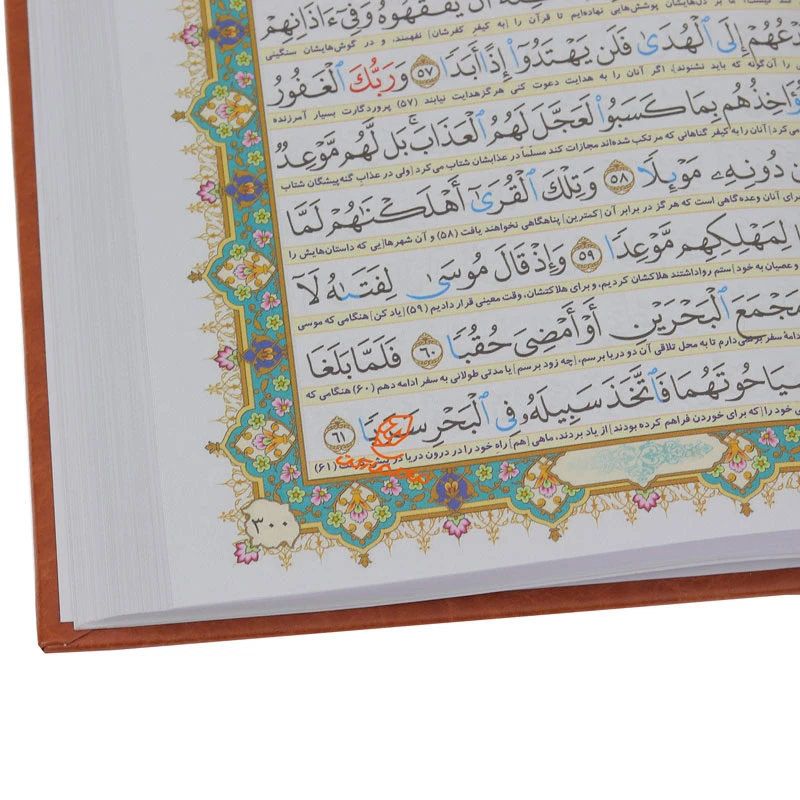 أَن يَفْقَهُوهُ وَفِىٓ ءَاذَانِهِمْ
بر دل‌هایشان پوشش‌هایی نهاده‌ایم تا قرآن را [به کیفر کفرشان] نفهمند، و در گوش‌هایشان سنگینی
إِلَى ٱلْهُدَىٰ فَلَن يَهْتَدُوٓا۟ إِذًا أَبَدًا ۝٥٧ وَرَبُّكَ ٱلْغَفُورُ
را آن‌گونه که باید نشنوند]، اگر آنان را به هدایت دعوت کنی هرگز هدایت نیابند (۵۷) پروردگارت بسیار آمرزنده
بِمَا كَسَبُوا۟ لَعَجَّلَ لَهُمُ ٱلْعَذَابَ ۚ بَل لَّهُم مَّوْعِدٌ
آنان را به کیفر گناهانی که مرتکب شده‌اند مجازات کند مسلّماً در عذابشان شتاب می‌کرد (ولی در عذاب گنه‌پیشگان شتاب
دُونِهِۦ مَوْئِلًا ۝٥٨ وَتِلْكَ ٱلْقُرَىٰٓ أَهْلَكْنَٰهُمْ لَمَّا
برای آنان وعده‌گاهی است که هرگز در برابر آن [کمترین] پناهگاهی نخواهند یافت (۵۸) و آن شهرها[یی که داستان‌هایش را
لِمَهْلِكِهِم مَّوْعِدًا ۝٥٩ وَإِذْ قَالَ مُوسَىٰ لِفَتَىٰهُ لَآ
و عصیان به خود] ستم رواداشتند هلاکشان کردیم، و برای هلاکتشان، وقت معینی قرار دادیم (۵۹) [یاد کن] هنگامی که موسی
مَجْمَعَ ٱلْبَحْرَيْنِ أَوْ أَمْضِىَ حُقُبًا ۝٦٠ فَلَمَّا بَلَغَا
سفر برنمی‌دارم تا به محل تلاقی آن دو دریا برسم، [چه زود برسم] یا مدتی طولانی به سفر ادامه دهم (۶۰) هنگامی که
حُوتَهُمَا فَٱتَّخَذَ سَبِيلَهُۥ فِى ٱلْبَحْرِ سَرَبًا ۝٦١
خود را [که برای خوردن فراهم کرده بودند] از یاد بردند، ماهی [هم] راهِ خود را در درون دریا در پیش (۶۱)
۳۰۰